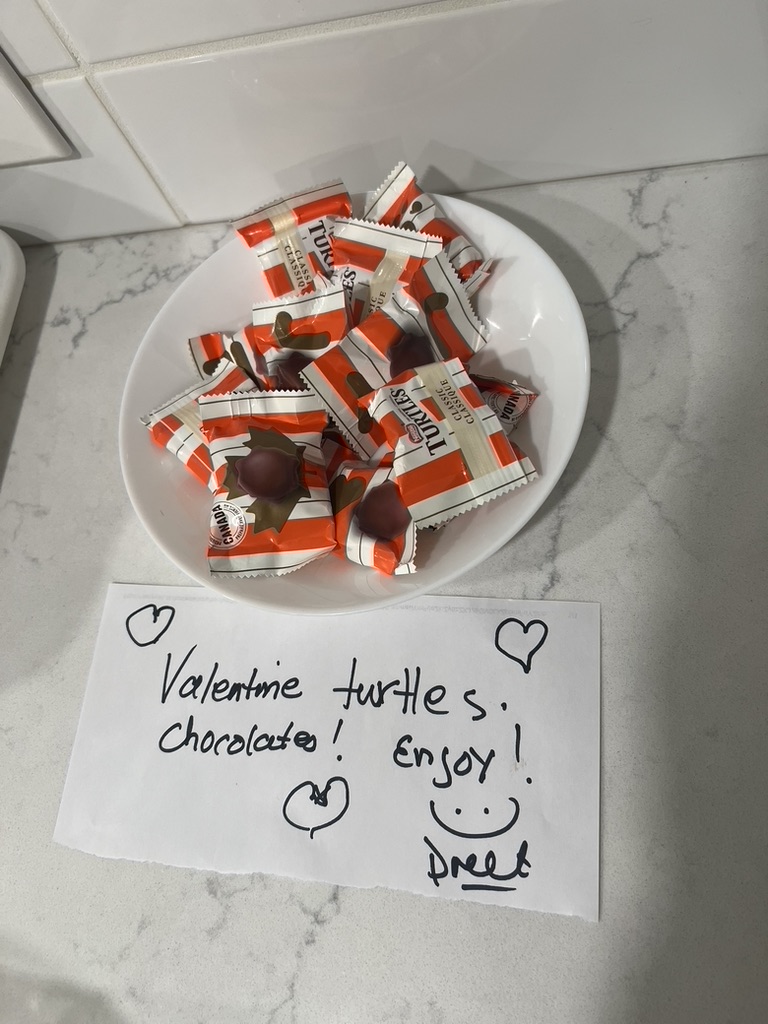 TURTLES
CLASSIC
CLASSIQUE
TURTLES
CLASSIC
CLASSIQUE
CANADA
CANADA
Valentine turtles.
Chocolates! Enjoy!
Preet